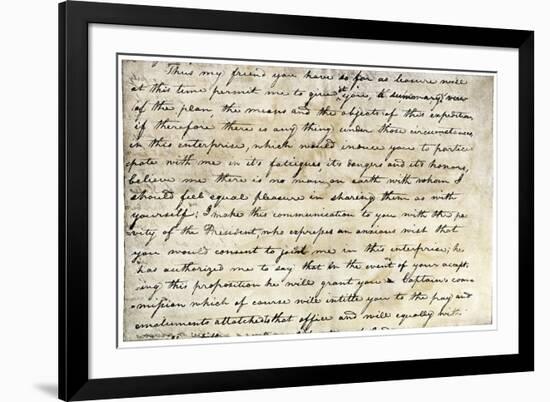 Thus my friend you have so far as leasure will
at this time permit me to give it you, a summary view
of the plan, the means and the objects of this expedition
if therefore there is any thing under those circumstances
in this enterprise, which would induce you to partici-
pate with me in it's fatiegues, it's dangers and it's honors,
believe me there is no man on earth with whom I
should feel equal pleasure in sharing them as with
yourself; I make this communication to you with the pr
vity of the President, who expresses an anxious wish that
you would consent to join me in this enterprise; he
has authorized me to say that in the event of your accept-
ing this proposition he will grant you a Captain's com-
mission which of course will intitle you to the pay and
emoluments attatched to that office and will equally with